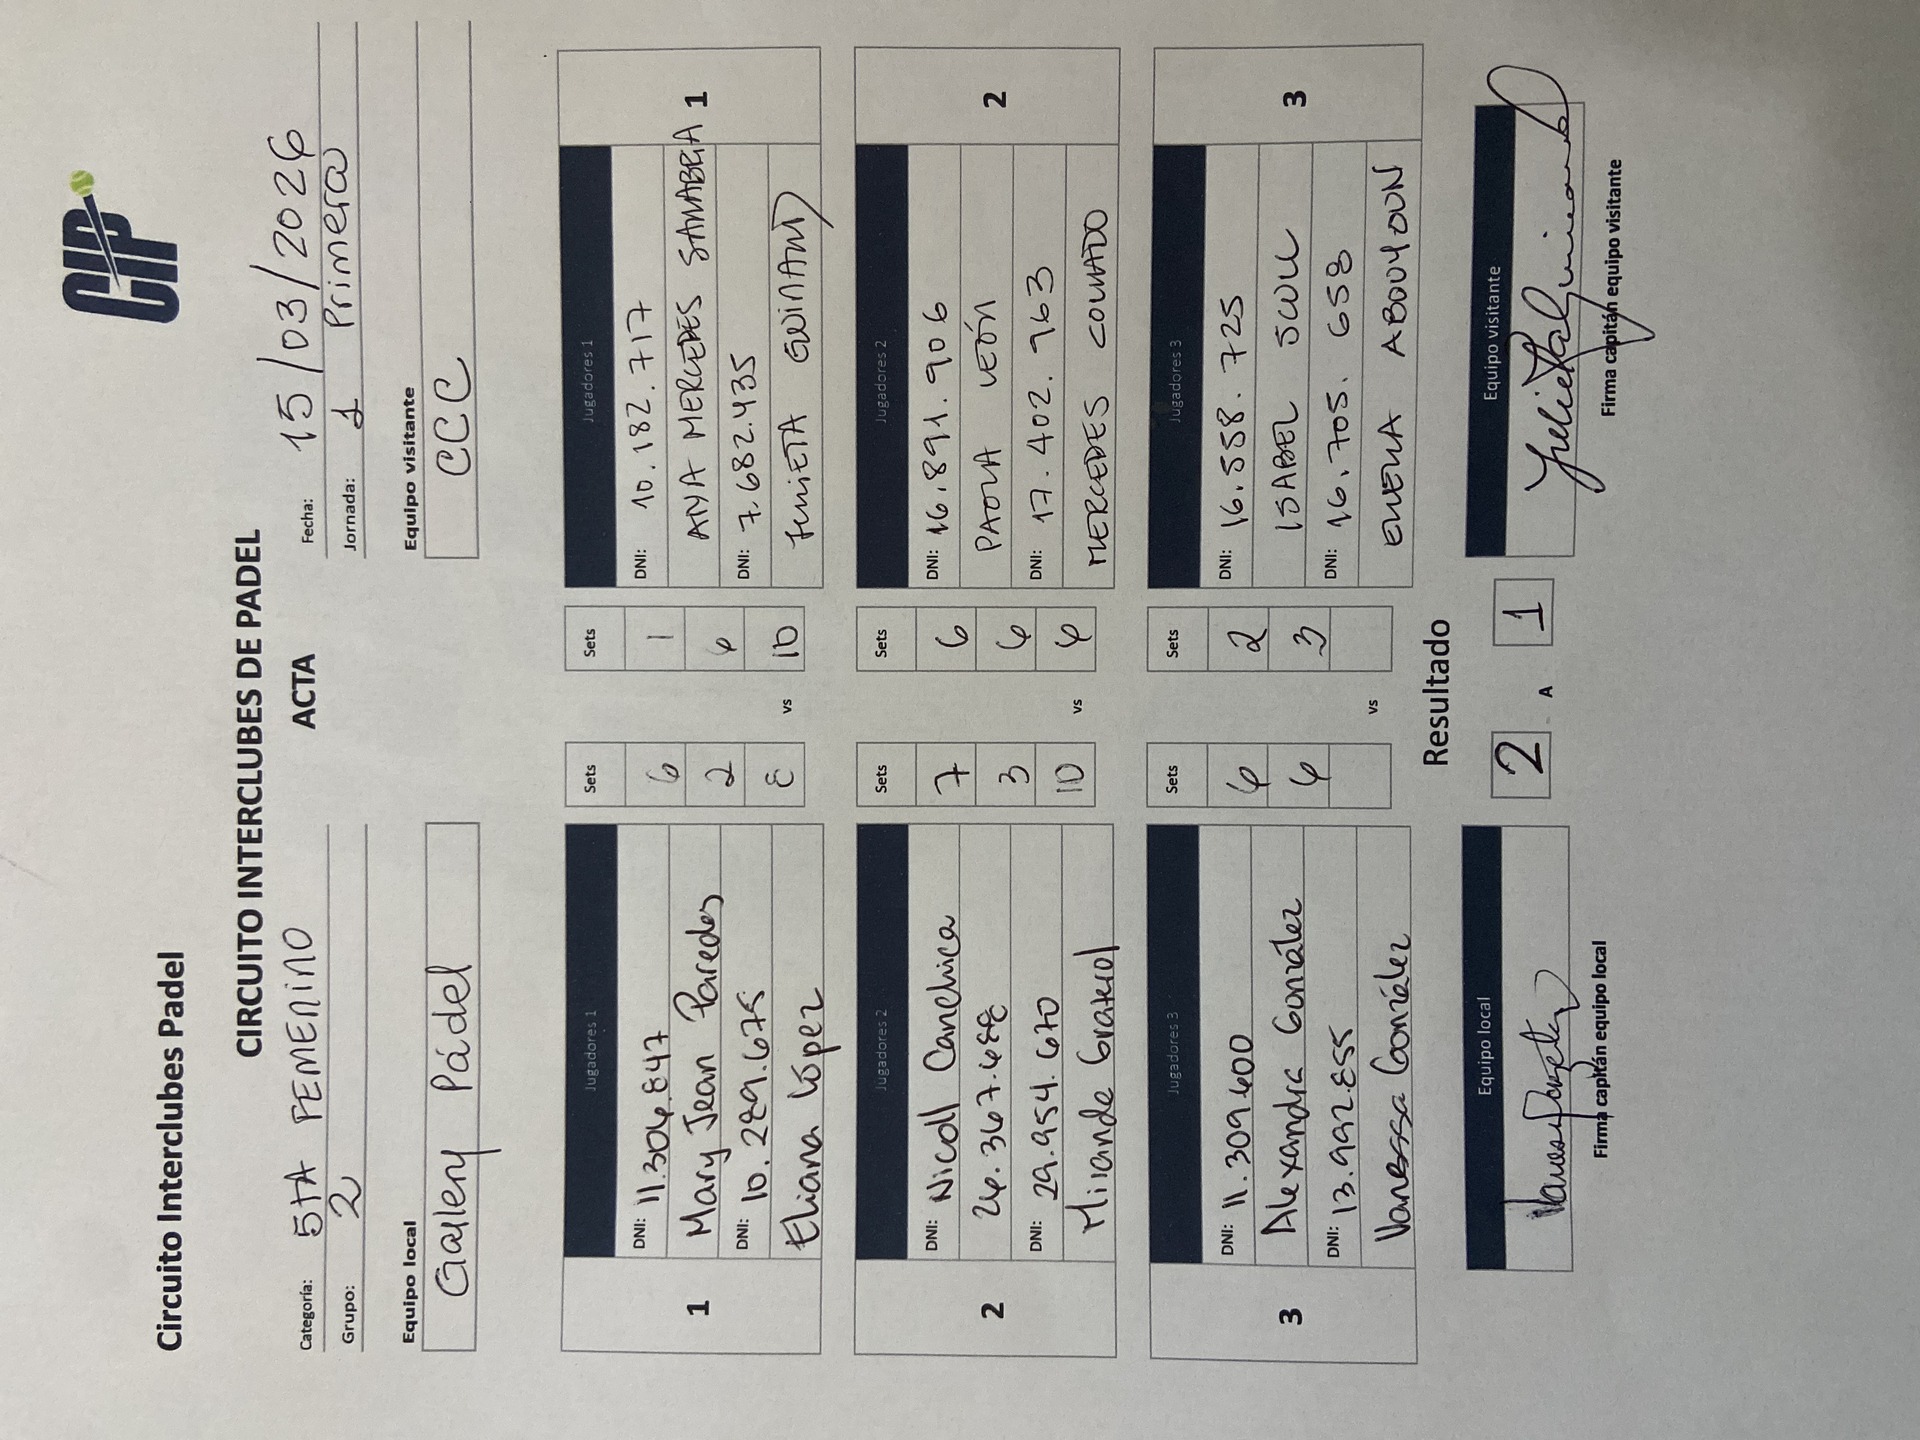 CIP
Circuito Interclubes Padel
CIRCUITO INTERCLUBES DE PADEL
ACTA
Categoría: 5TA FEMENINO
Fecha: 15/03/2026
Grupo: 2
Jornada: 1 Primera
Equipo local
Equipo visitante
Galery Pádel
CCC
Jugadores 1 Sets Sets Jugadores 1
DNI: 11.306.847 6 1 DNI: 10.182.717
1 Mary Jean Paredes 2 6 ANA MERCEDES SANABRIA 1
DNI: 10.289.675 8 vs 10 DNI: 7.682.435
Eliana López JULIETA GUINAND
Jugadores 2 Sets Sets Jugadores 2
DNI: Nicoll Canchica 7 6 DNI: 16.891.906
2 26.367.688 3 6 PAOLA LEÓN 2
DNI: 29.954.670 10 vs 6 DNI: 17.402.963
Miranda Graterol MERCEDES COLLADO
Jugadores 3 Sets Sets Jugadores 3
DNI: 11.309.600 6 2 DNI: 16.558.725
3 Alexandra González 6 3 ISABEL SCULL 3
DNI: 13.992.855 vs DNI: 16.705.658
Vanessa González
Resultado
Equipo local 2 A 1 Equipo visitante
Firma capitán equipo local
Firma capitán equipo visitante